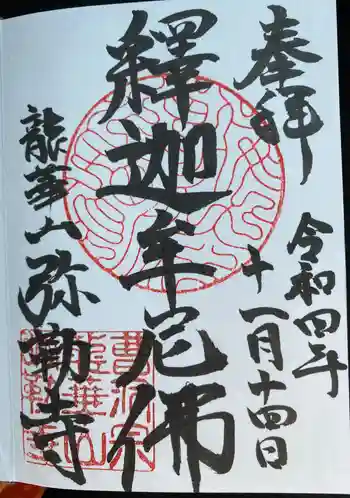 奉拝
令和四年
十一月十四日
釋迦牟尼佛
龍華山弥勒寺
曹洞宗
龍華山
弥勒寺